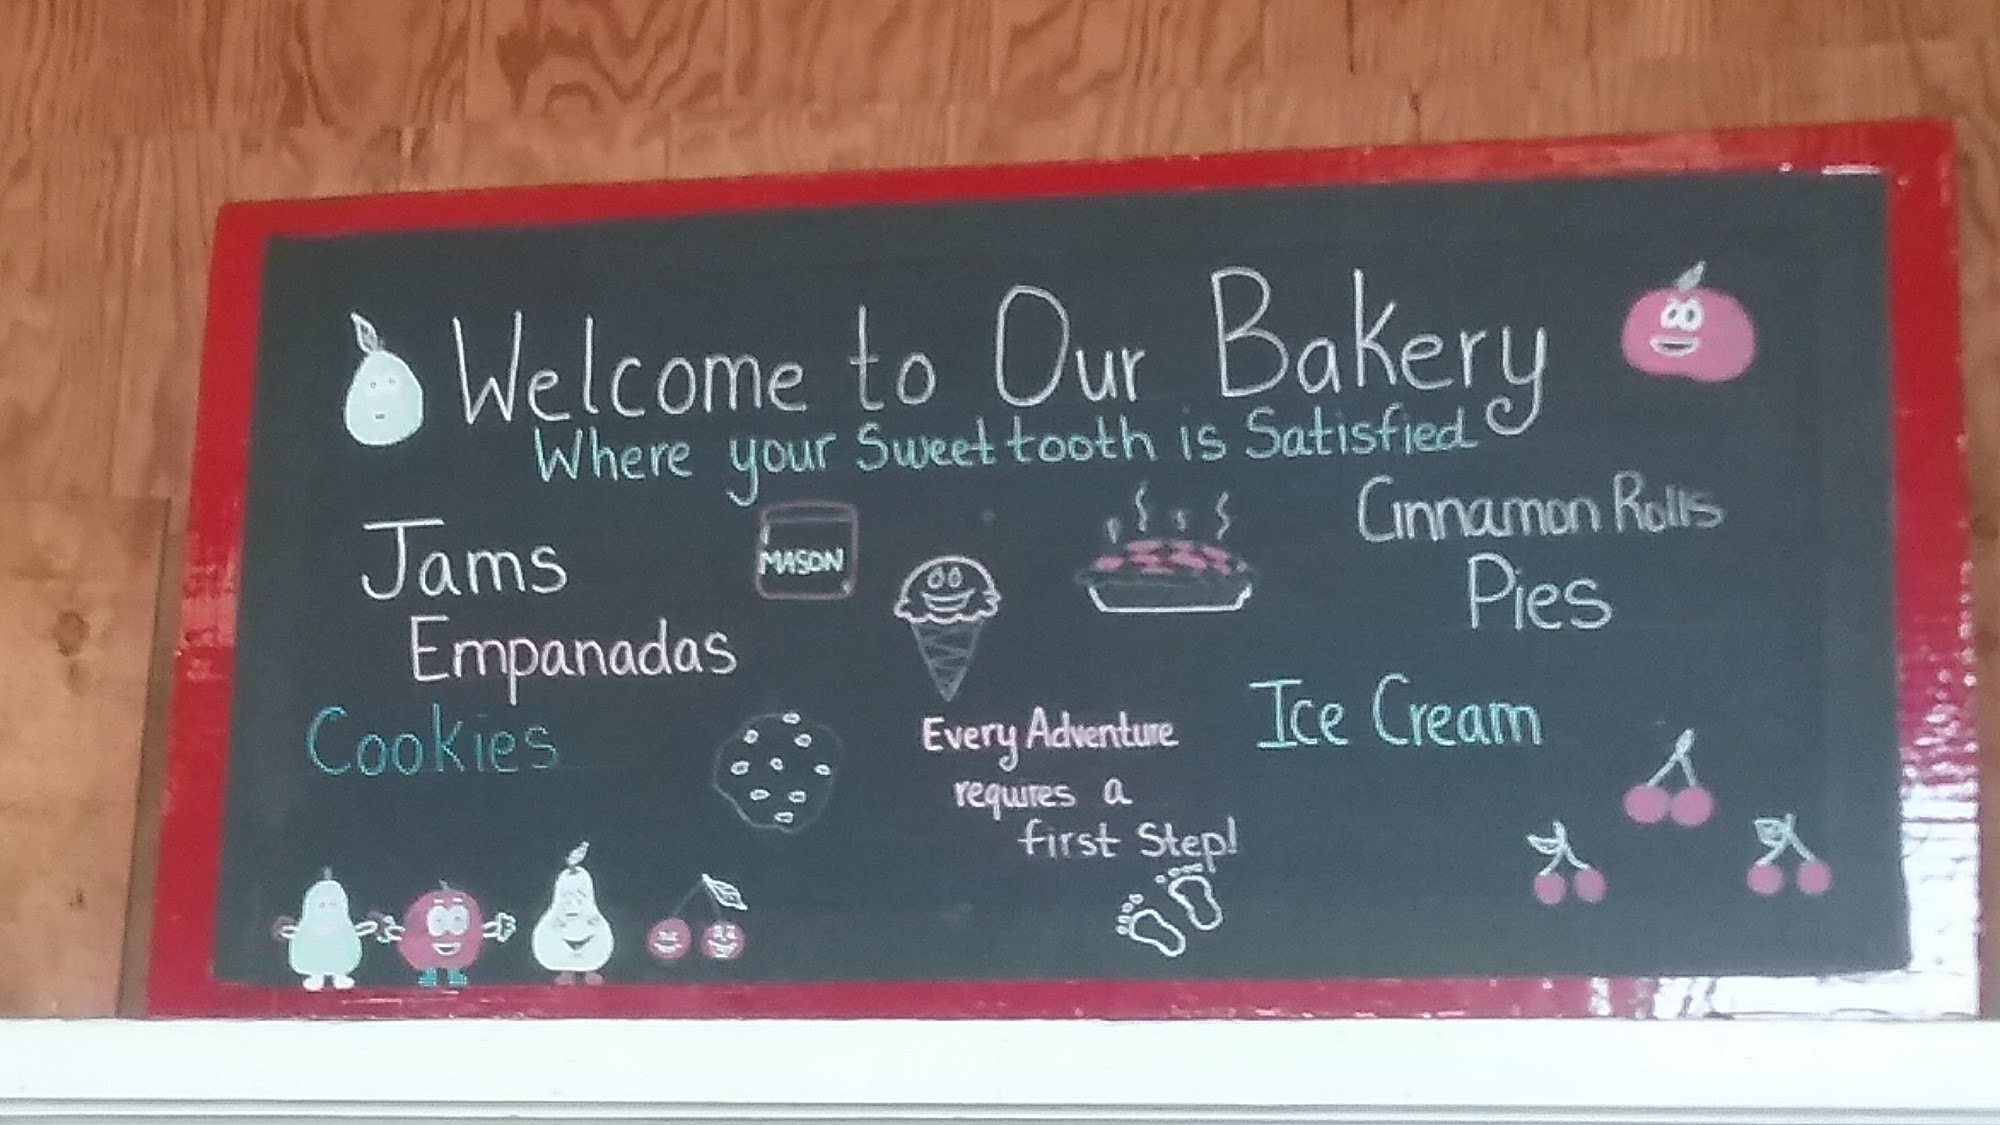 Welcome to Our Bakery
Where your Sweet tooth is Satisfied
Jams
Empanadas
Cookies
MASON
Cinnamon Rolls
Pies
Ice Cream
Every Adventure
requires a
first Step!